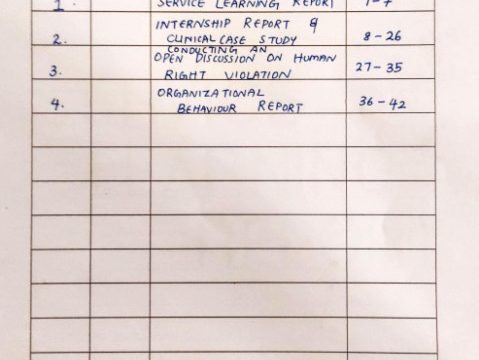 1. SERVICE LEARNING REPORT 1-7
INTERNSHIP REPORT &
2. CLINICAL CASE STUDY 8-26
CONDUCTING AN
OPEN DISCUSSION ON HUMAN
3. RIGHT VIOLATION 27-35
ORGANIZATIONAL
4. BEHAVIOUR REPORT 36-42